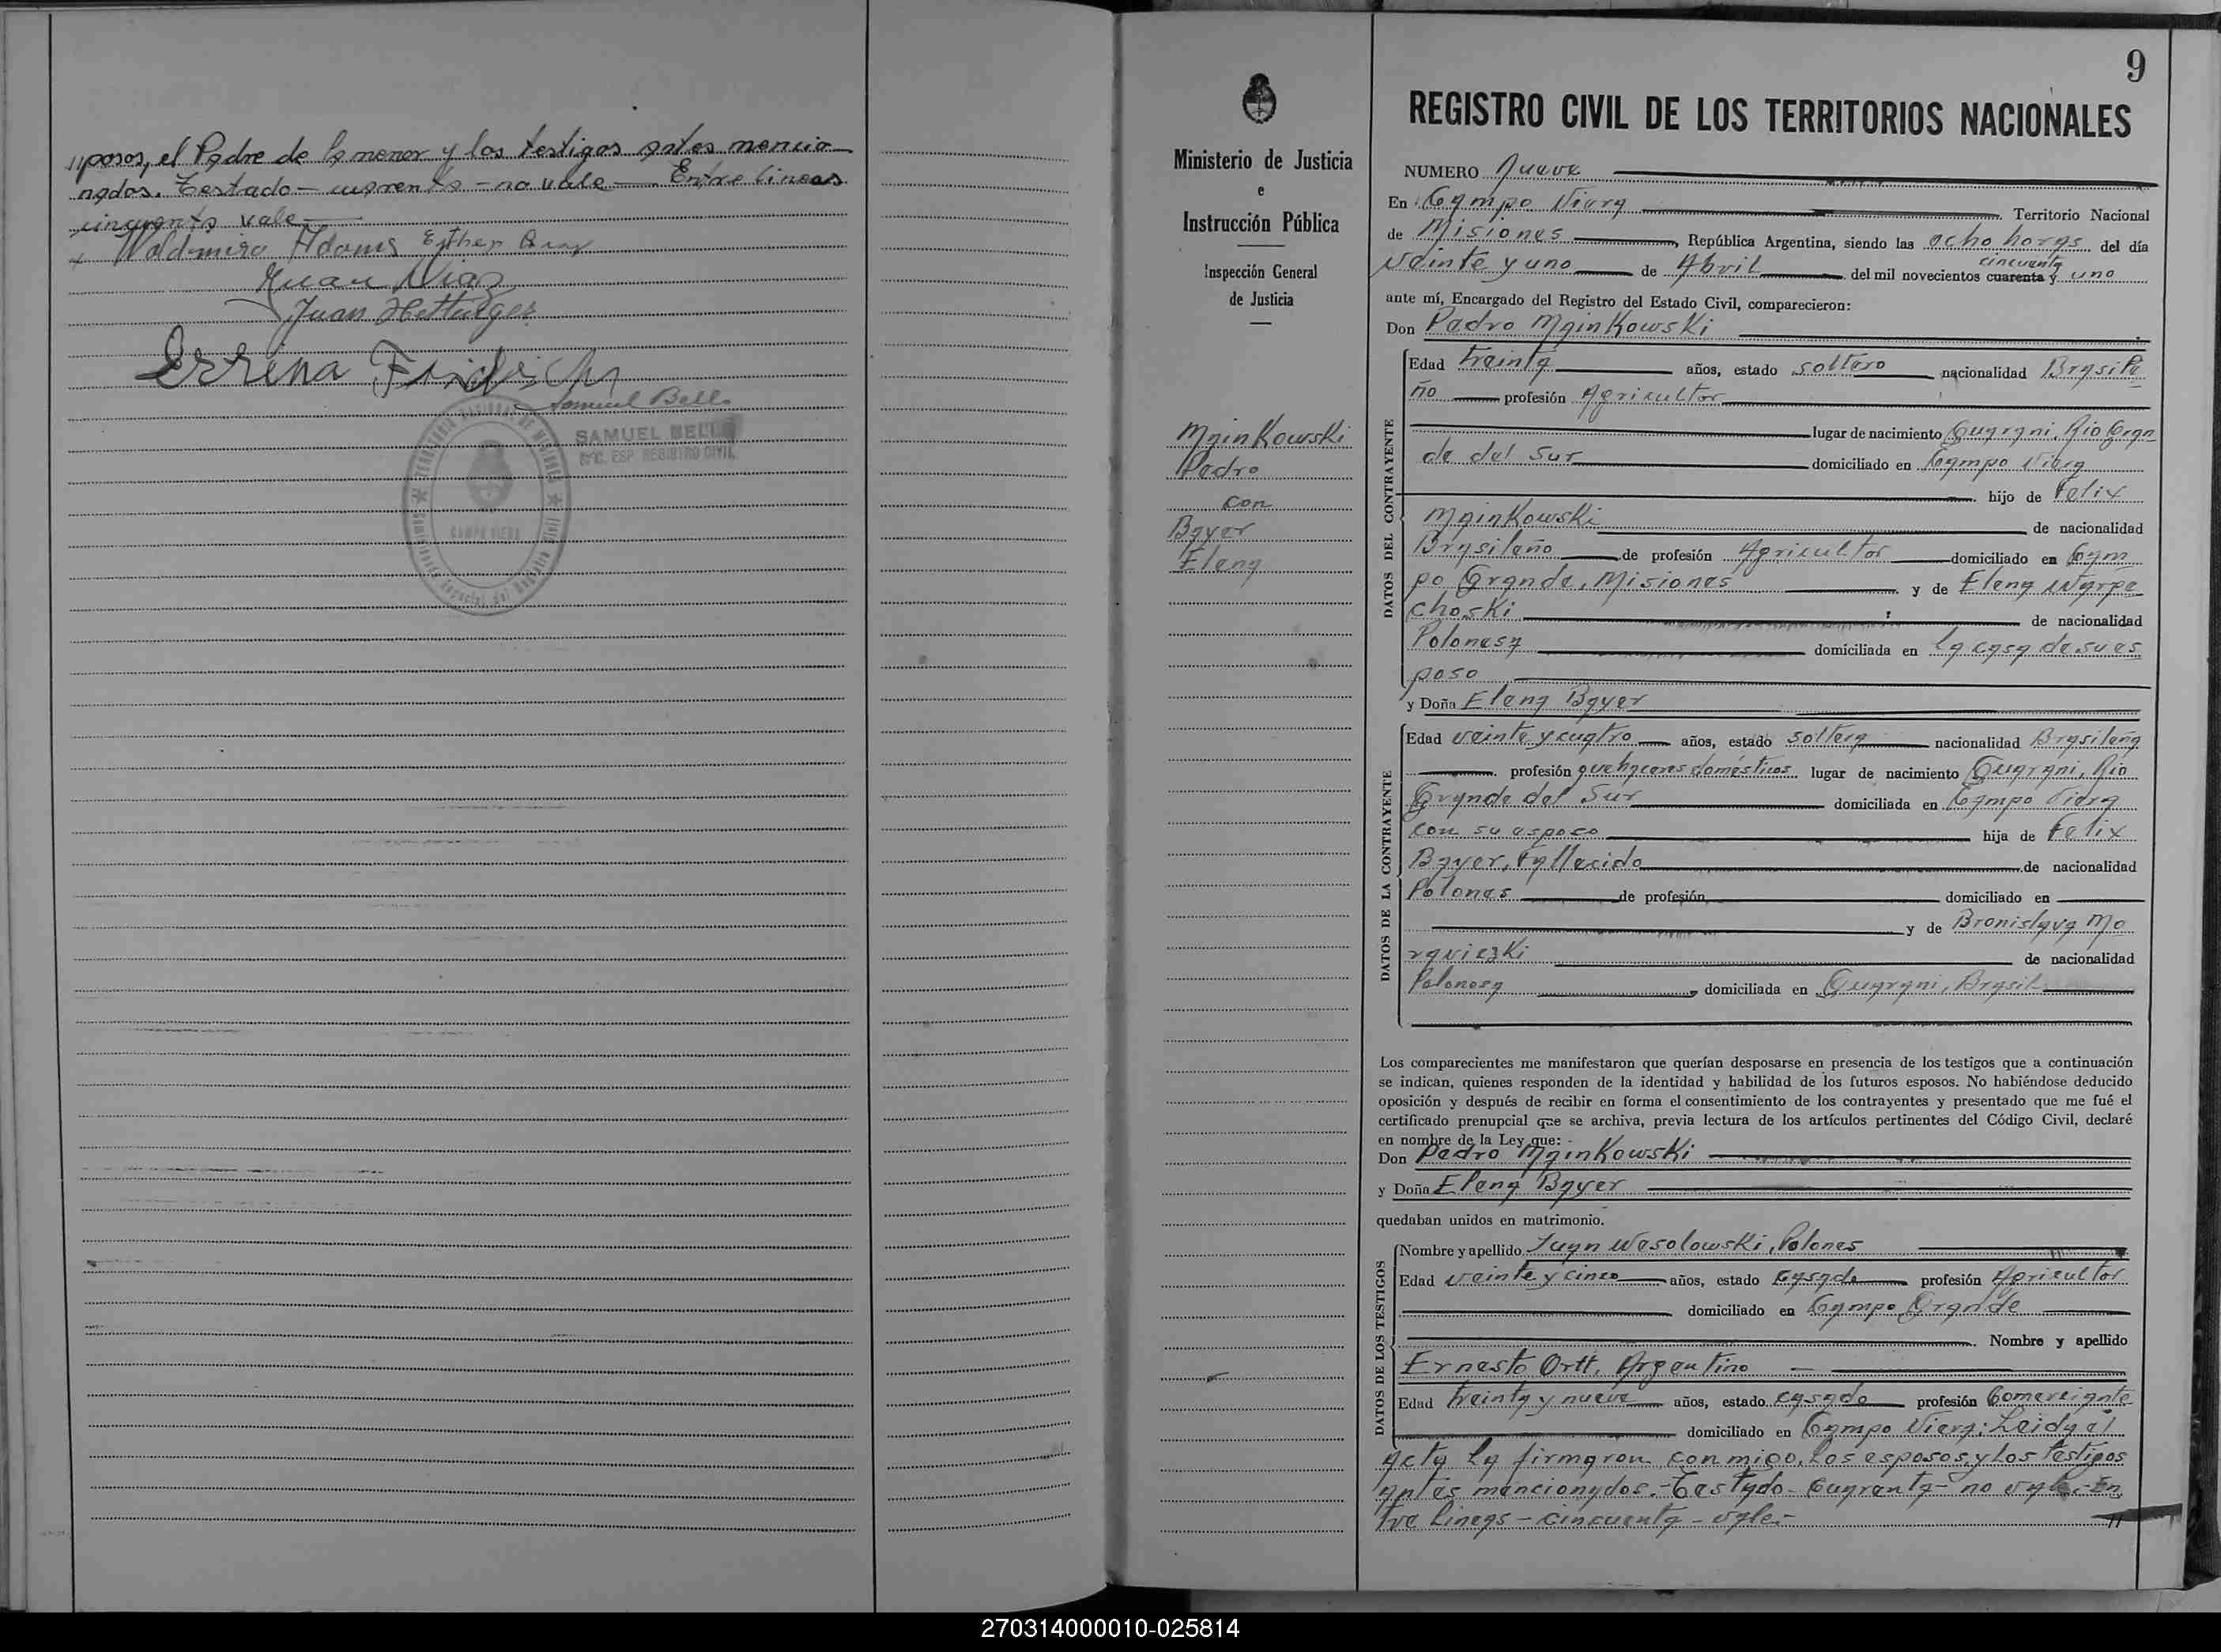 "posos, el Padre de la menor y los testigos antes mencio-
nados. Testado - cuarenta - no vale - Entre lineas
cincuenta vale
Waldmiro Adams Esther
Juan Diaz
Juan Hettinger
Errena Fridrich
Samuel Bello
SAMUEL BELLO
ENC. ESP. REGISTRO CIVIL
CAMPO VIERA
9
Ministerio de Justicia
e
Instrucción Pública
Inspección General
de Justicia
Mainkowski
Pedro
con
Bayer
Elena
REGISTRO CIVIL DE LOS TERRITORIOS NACIONALES
NUMERO Nueve
En Campo Viera Territorio Nacional
de Misiones, República Argentina, siendo las ocho horas del día
cincuenta
veinte y uno de Abril del mil novecientos cuarenta y uno
ante mí, Encargado del Registro del Estado Civil, comparecieron:
Don Pedro Mainkowski
DATOS DEL CONTRAYENTE
Edad treinta años, estado soltero nacionalidad Brasile
ño profesión Agricultor
lugar de nacimiento Guarani, Rio Gran
de del Sur domiciliado en Campo Viera
hijo de Felix
Mainkowski de nacionalidad
Brasileño de profesión Agricultor domiciliado en Cam
po Grande, Misiones y de Elena Warpe
choski de nacionalidad
Polonesa domiciliada en la casa de su es
poso
y Doña Elena Bayer
DATOS DE LA CONTRAYENTE
Edad veinte y cuatro años, estado soltera nacionalidad Brasileña
profesión quehaceres domésticos lugar de nacimiento Guarani, Rio
Grande del Sur domiciliada en Campo Viera
con su esposo hija de Felix
Bayer, Fallecido de nacionalidad
Polones de profesión domiciliado en
y de Bronislava Mo
ravieski de nacionalidad
Polonesa domiciliada en Guarani, Brasil
Los comparecientes me manifestaron que querían desposarse en presencia de los testigos que a continuación
se indican, quienes responden de la identidad y habilidad de los futuros esposos. No habiéndose deducido
oposición y después de recibir en forma el consentimiento de los contrayentes y presentado que me fué el
certificado prenupcial que se archiva, previa lectura de los artículos pertinentes del Código Civil, declaré
en nombre de la Ley que:
Don Pedro Mainkowski
y Doña Elena Bayer
quedaban unidos en matrimonio.
DATOS DE LOS TESTIGOS
Nombre y apellido Juan Wesolowski, Polones
Edad veinte y cinco años, estado Casado profesión Agricultor
domiciliado en Campo Grande
Nombre y apellido
Ernesto Ortt, Argentino
Edad treinta y nueve años, estado casado profesión Comerciante
domiciliado en Campo Viera; Leida el
acta la firmaron conmigo, los esposos y los testigos
antes mencionados.- Testado - Cuarenta - no vale.- En
tre lineas - cincuenta - vale.- "
270314000010-025814